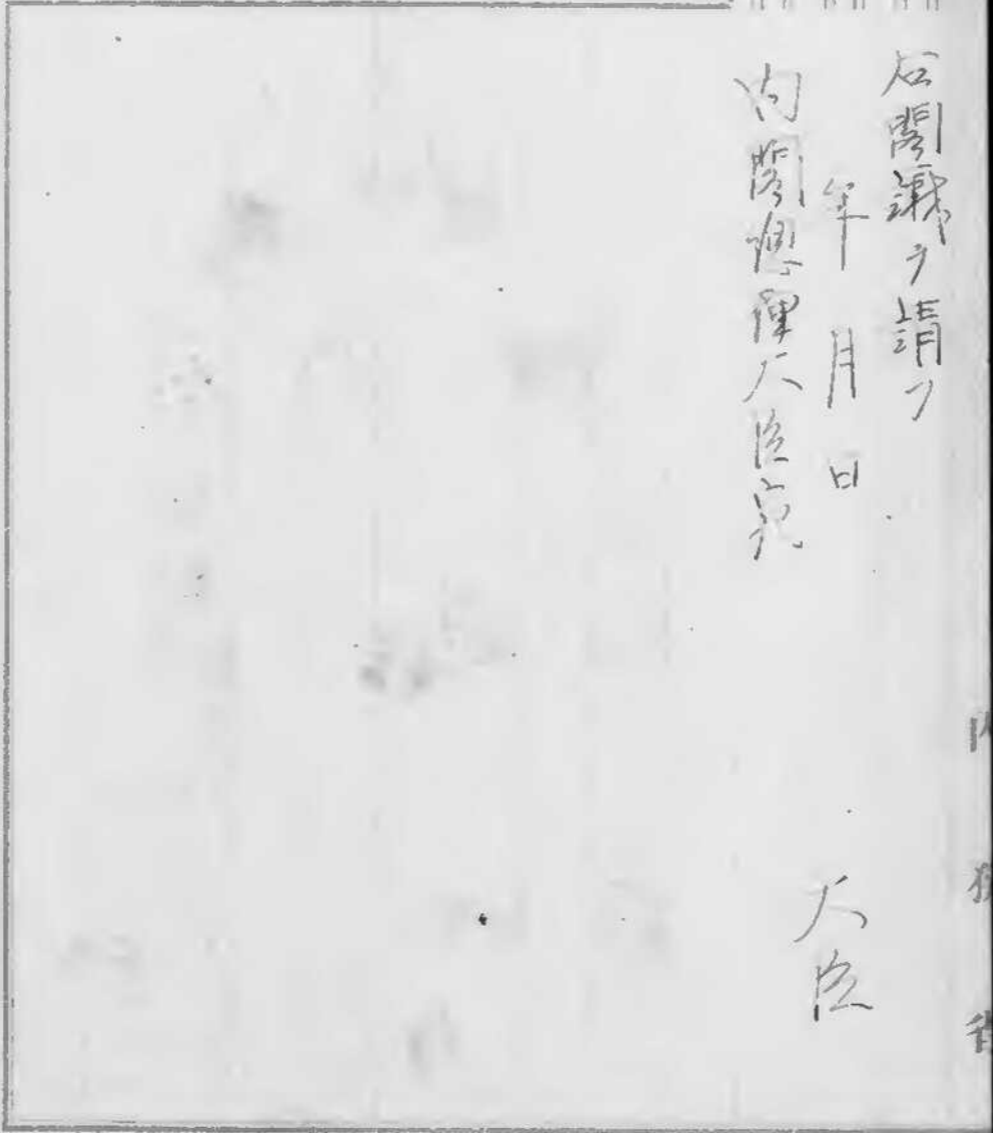 右閣議ヲ請フ
年月日
大臣
内閣総理大臣宛
内務省